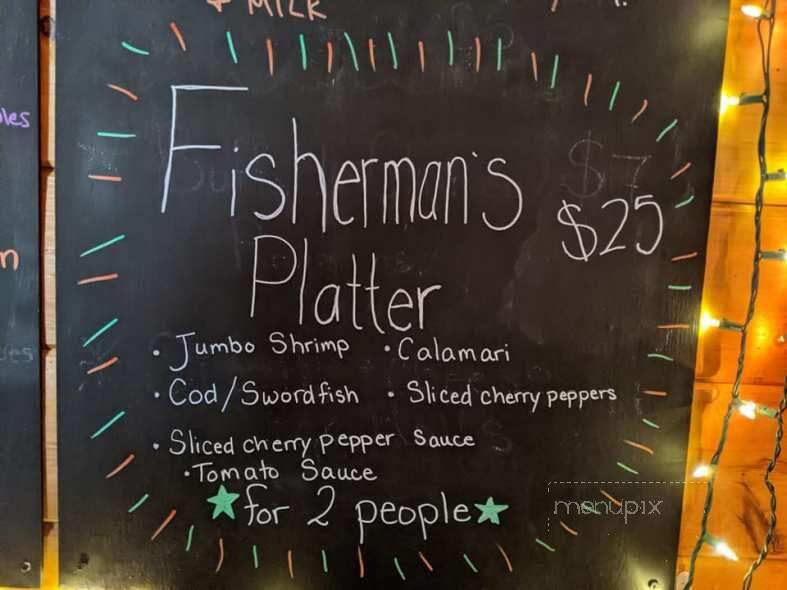 MILK
Fisherman's
$25
Platter
• Jumbo Shrimp • Calamari
• Cod/Swordfish • Sliced cherry peppers
• Sliced cherry pepper sauce
• Tomato Sauce
★for 2 people★
menupix